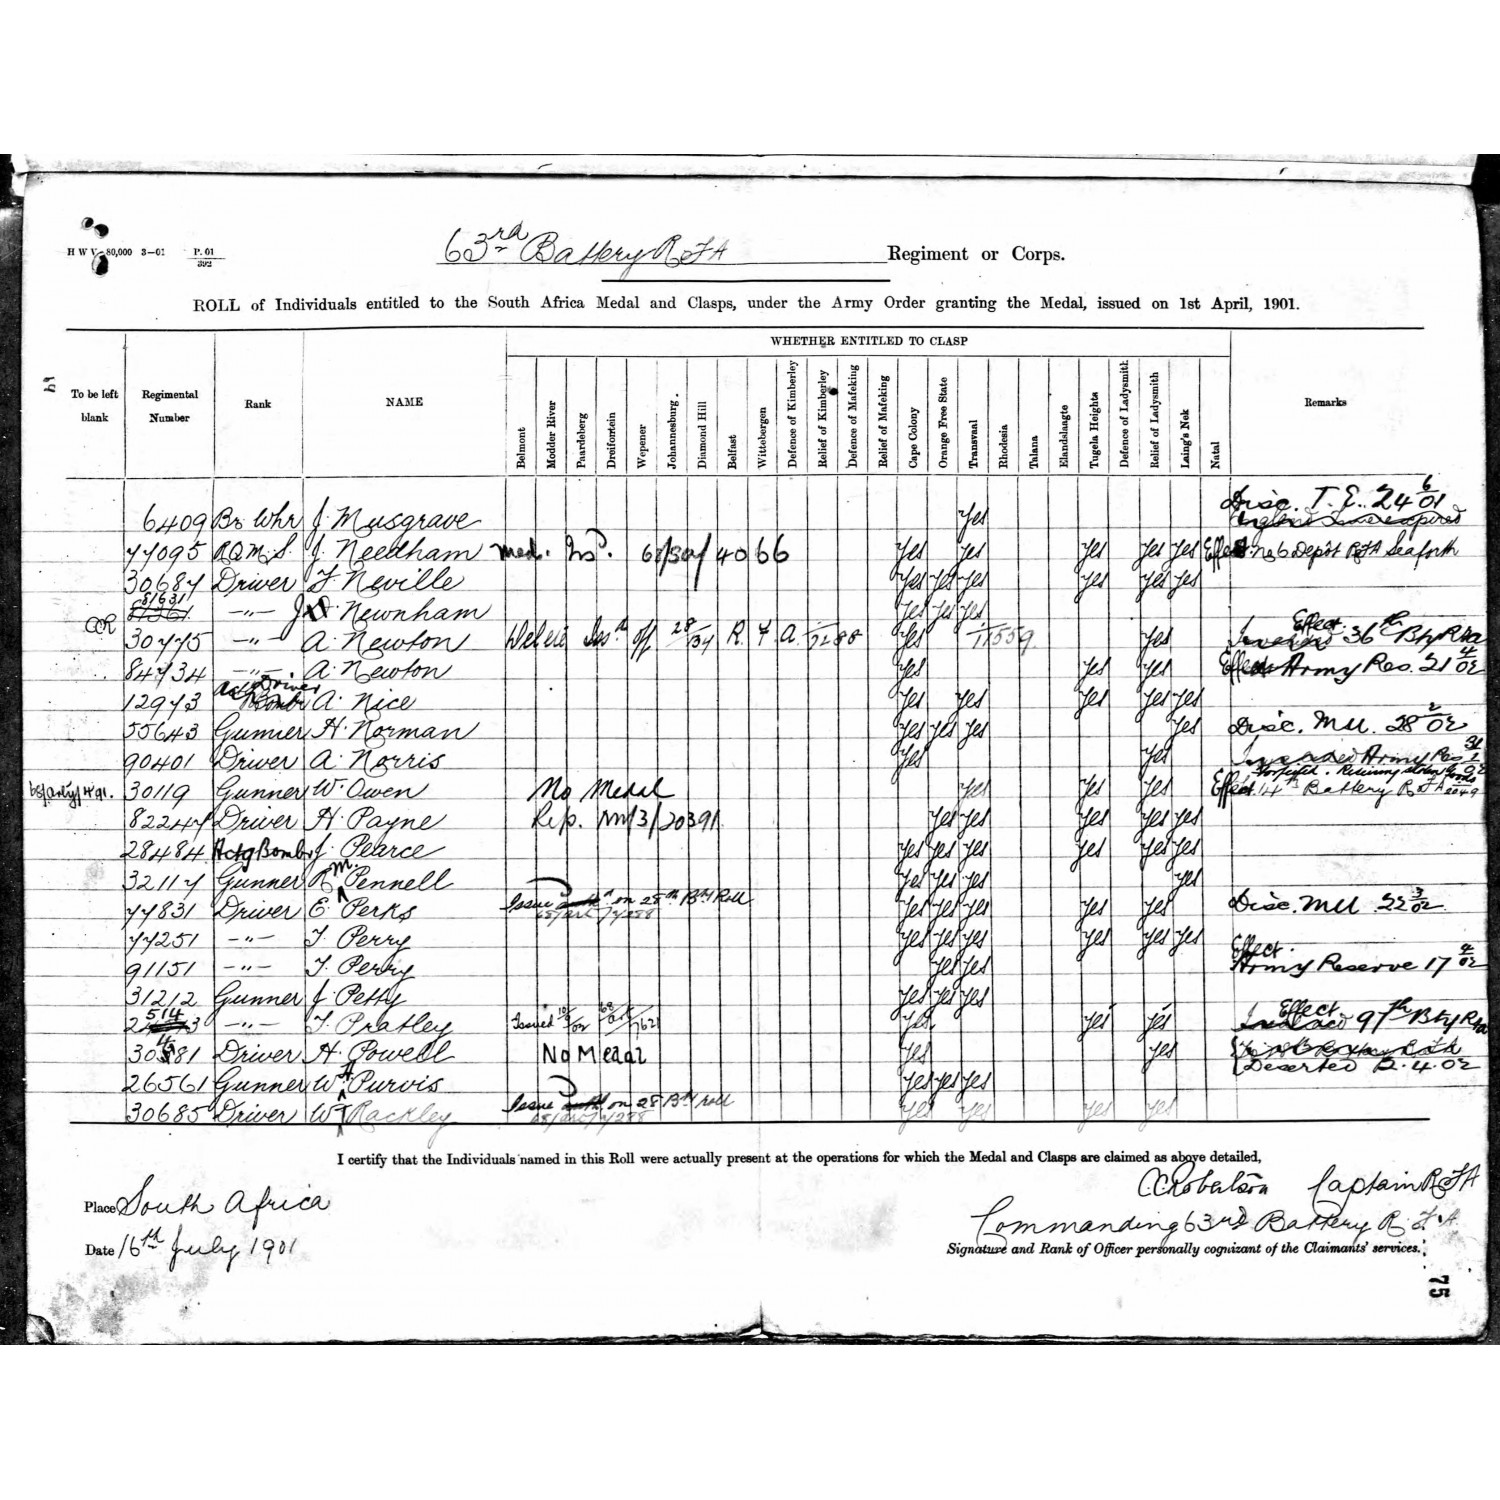 H W V 80,000 3—01 P. 01
392
63rd Battery RFA Regiment or Corps.
ROLL of Individuals entitled to the South Africa Medal and Clasps, under the Army Order granting the Medal, issued on 1st April, 1901.
WHETHER ENTITLED TO CLASP
To be left blank Regimental Number Rank NAME Belmont Modder River Paardeberg Dreifontein Wepener Johannesburg. Diamond Hill Belfast Wittebergen Defence of Kimberley Relief of Kimberley Defence of Mafeking Relief of Mafeking Cape Colony Orange Free State Transvaal Rhodesia Talana Elandslaagte Tugela Heights Defence of Ladysmith Relief of Ladysmith Laing's Nek Natal Remarks
6409 Br Whr J. Musgrave Yes Disc. T. E. 24 6/01
77095 RQMS. J. Needham Yes Yes Yes Yes Yes No 6 Depôt RFA Seaforth
30687 Driver F Neville Yes Yes Yes Yes Yes Yes
81631 —"— J Newnham Yes Yes Yes
30775 —"— A. Newton off 28 R. F A. Yes Yes Effect. 36th Bty RFA
84734 —"— A. Newton Yes Yes Yes Effect Army Res. 21 4/02
12973 Driver A. Nice Yes Yes Yes Yes Yes
55643 Gunner H. Norman Yes Yes Yes Yes Disc. MU. 28 2/02
90401 Driver A. Norris Yes Yes Invalided Army Res 31 1/02
30119 Gunner W. Owen No Medal Yes Yes Yes Effect. 14th Battery RFA
82247 Driver H. Payne Yes Yes Yes Yes Yes
28484 Actg Bombr J. Pearce Yes Yes Yes Yes Yes Yes
32117 Gunner R M. Pennell Yes Yes Yes Yes
77831 Driver E. Perks Issue on 28th Bty Roll Yes Yes Yes Yes Yes Disc. MU 22 3/02
77251 —"— T. Perry Yes Yes Yes Yes Yes Yes
91151 —"— T. Perry Yes Yes Effect. Army Reserve 17 4/02
31212 Gunner J. Petty Yes Yes Yes
—"— T. Pratley Issued Yes Yes Yes Effect 9th Bty RFA
Driver H. Powell No Medal Yes Yes Deserted 2.4.02
26561 Gunner W. H Purvis Yes Yes Yes
30685 Driver W T Rackley Issue on 28 Bty roll Yes Yes Yes Yes
I certify that the Individuals named in this Roll were actually present at the operations for which the Medal and Clasps are claimed as above detailed,
C.C. Robertson Captain RFA
Place South Africa
Commanding 63rd Battery R.F.A.
Date 16th July 1901
Signature and Rank of Officer personally cognizant of the Claimants' services.
75